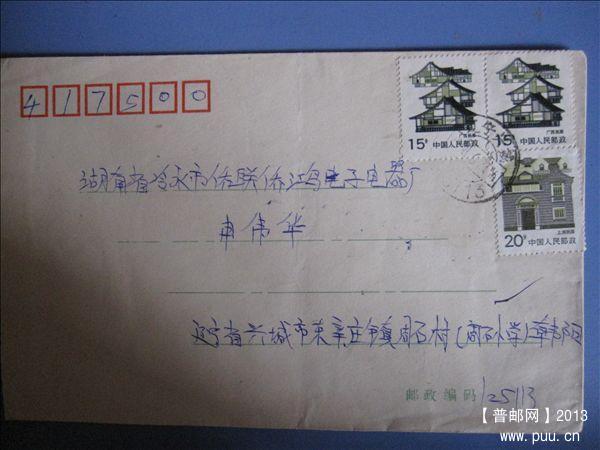 417500
15分
中国人民邮政
广西民居
15分
中国人民邮政
广西民居
20分
中国人民邮政
上海民居
湖南省冷水市侨联侨鸿电子电器厂
伟华
辽宁省兴城市东辛庄镇周石村(周石小学)
邮政编码 125113
【普邮网】2013
www.puu.cn